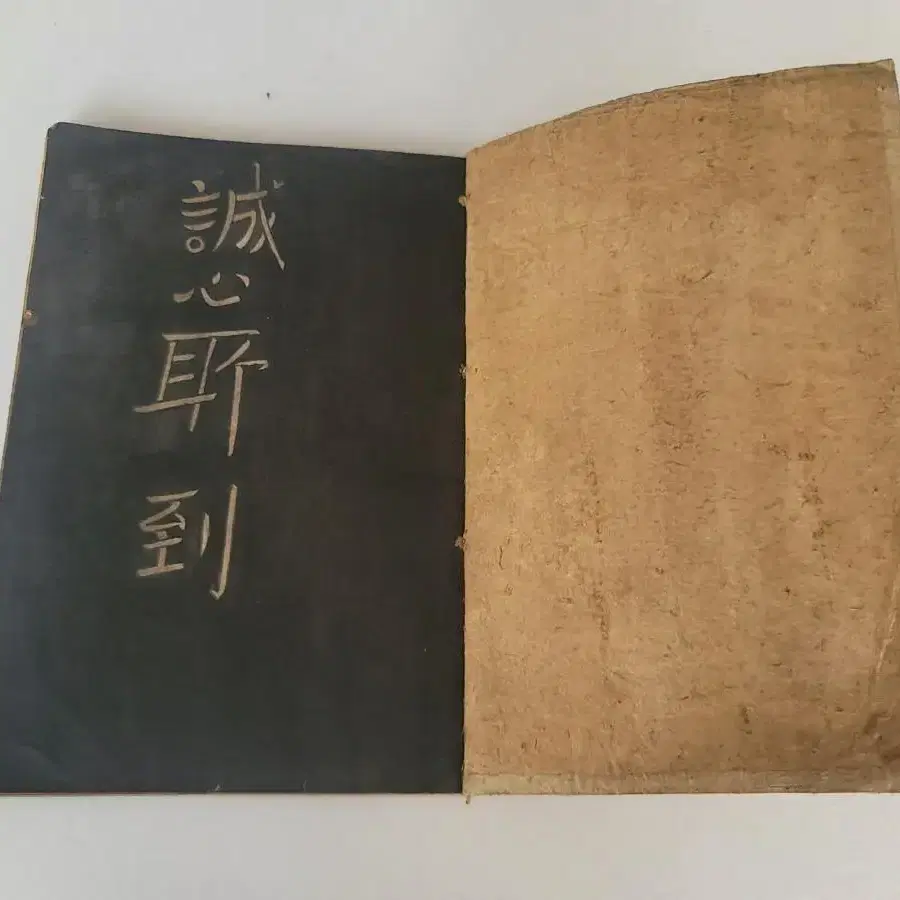 誠心所到